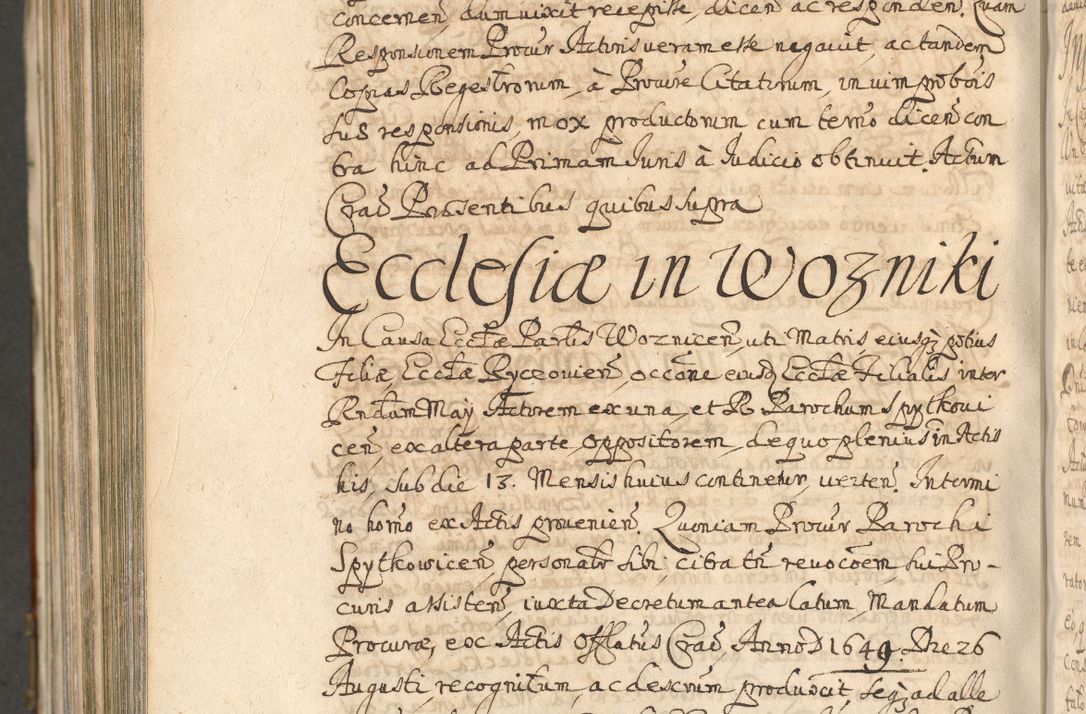 concernen̄ dum vixit recepisse, dicen̄ ac responden̄. Quam
Responsionem Procur̄ Actoris veram esse negavit, ac tandem
Copias Regestrorum, à Procur̄e Citatorum, in vim prob̄ois
suæ responsionis, mox productorum cum term̄o dicen̄ con
tra hinc ad Primam Juris à Judicio obtinuit. Actum
Crac̄ Præsentibus quibus supra
Ecclesiæ in Wozniki
In Causa Eccl̄æ Par̄lis Woznicen̄, uti Matris eiusq̄ potius
Filiæ, Eccl̄æ Ryczovien̄, occōne eiusd̄ Eccl̄æ Filialis inter
Rend̄um May Actorem ex una, et R Parochum Spytkovi
cen̄ ex altera parte, oppositorem, de quo plenius in Actis
his, sub die 13. Mensis huius continetur, verten̄. In termi
no hoc̄o ex Actis provenien̄. Quoniam Procur̄ Parochi
Spytkovicen̄ personal̄r sibi, citra tn̄ revoc̄oem sui Pro-
curis assisten̄, iuxta Decretum antea latum, Mandatum
Procuræ, ex Actis Offlatūs Crac̄, Anno D 1649. Die 26
Augusti, recognitum, ac descrum produxit, seq̄ ad alle